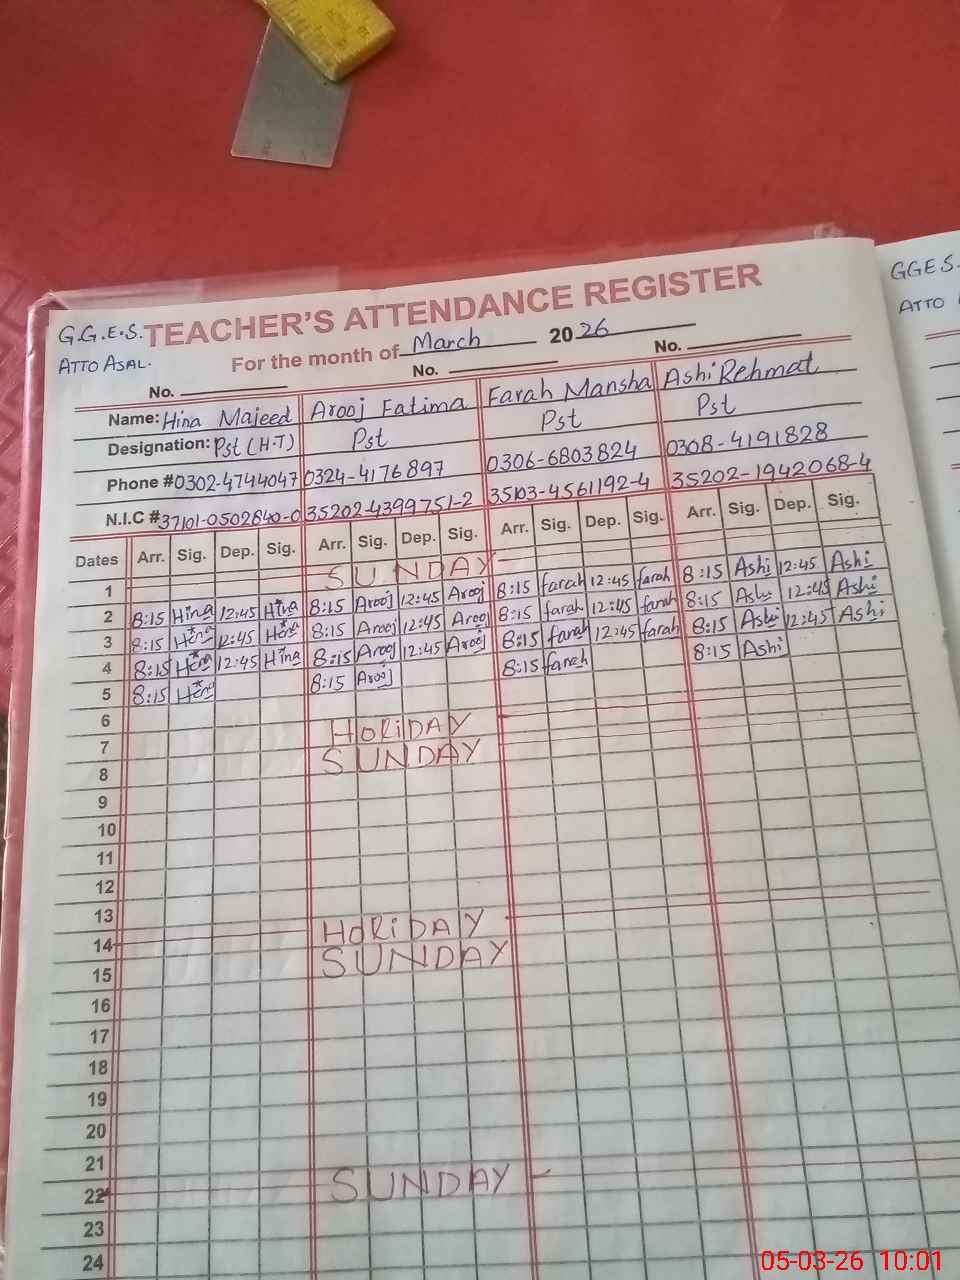 GGES.
ATTO
G.G.E.S. TEACHER'S ATTENDANCE REGISTER
ATTO ASAL. For the month of March 2026
No. No. No.
Name: Hina Majeed Arooj Fatima Farah Mansha Ashi Rehmat
Designation: Pst (H-T) Pst Pst Pst
Phone # 0302-4744047 0324-4176897 0306-6803824 0308-4191828
N.I.C # 37101-0502640-0 35202-4399751-2 35103-4561192-4 35202-1942068-4
Dates Arr. Sig. Dep. Sig. Arr. Sig. Dep. Sig. Arr. Sig. Dep. Sig. Arr. Sig. Dep. Sig.
1 SUNDAY
2 8:15 Hina 12:45 Hina 8:15 Arooj 12:45 Arooj 8:15 farah 12:45 farah 8:15 Ashi 12:45 Ashi
3 8:15 Hina 12:45 Hina 8:15 Arooj 12:45 Arooj 8:15 farah 12:45 farah 8:15 Ashi 12:45 Ashi
4 8:15 Hina 12:45 Hina 8:15 Arooj 12:45 Arooj 8:15 farah 12:45 farah 8:15 Ashi 12:45 Ashi
5 8:15 Hina 8:15 Arooj 8:15 farah 8:15 Ashi
6
7 HOLiDAY
8 SUNDAY
9
10
11
12
13
14 HOLiDAY
15 SUNDAY
16
17
18
19
20
21
22 SUNDAY
23
24
05-03-26 10:01